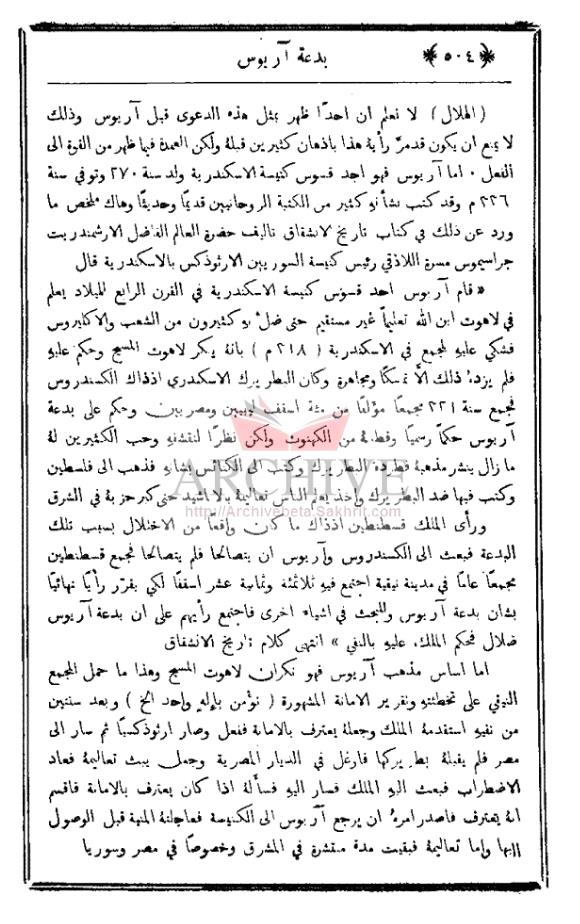 ﴿٥٠٤﴾ بدعة آريوس
( الهلال ) لا نعلم ان احدًا ظهر بمثل هذه الدعوى قبل آريوس وذلك
لا يمنع ان يكون قد مرَّ رأيهُ هذا باذهان كثيرين قبلهُ ولكن العمدة فيما ظهر من القوة الى
الفعل ٠ اما آريوس فهو احد قسوس كنيسة الاسكندرية ولد سنة ٢٧٠ وتوفي سنة
٣٣٦ م وقد كتب نشأتهِ كثير من الكتبة الروحانيين قديمًا وحديثًا وهاك ملخص ما
ورد عن ذلك في كتاب تاريخ الانشقاق تاليف حضرة العالم الفاضل الارشمندريت
جراسيموس مسرة اللاذقي رئيس كنيسة السوريين الارثوذكس بالاسكندرية قال
« قام آريوس احد قسوس كنيسة الاسكندرية في القرن الرابع للميلاد يعلم
في لاهوت ابن الله تعليمًا غير مستقيم حتى ضلَّ بهِ كثيرون من الشعب والاكليروس
فشكي عليهِ لمجمع في الاسكندرية ( ٣١٨ م ) بانهُ ينكر لاهوت المسيح وحكم عليهِ
فلم يزدهُ ذلك الَّا تمسكًا ومجاهرة وكان البطريرك الاسكندري اذذاك الكسندروس
فجمع سنة ٣٢١ مجمعًا مؤلفًا من مئة اسقف ليبيين ومصريين وحكم على بدعة
آريوس حكمًا رسميًا وقطعهُ من الكهنوت ولكن نظرًا لتقشفهِ وحب الكثيرين لهُ
ما زال ينشر مذهبهُ فطردهُ البطريرك وكتب الى الكنائس بشانهِ فذهب الى فلسطين
وكتب فيها ضد البطريرك واخذ يعلم الناس تعاليمهُ بالاناشيد حتى كبر حزبهُ في الشرق
ARCHIVE
http://Archivebeta.Sakhrit.com
ورأى الملك قسطنطين اذذاك ما كان واقعًا من الاختلال بسبب تلك
البدعة فبعث الى الكسندروس وآريوس ان يتصالحا فلم يتصالحا فجمع قسطنطين
مجمعًا عامًا في مدينة نيقية اجتمع فيهِ ثلاثمئة وثمانية عشر اسقفًا لكي يقرر رأيًا نهائيًا
بشان بدعة آريوس وللبحث في اشياء اخرى فاجتمع رأيهم على ان بدعة آريوس
ضلال فحكم الملك عليهِ بالنفي » انتهى كلام تاريخ الانشقاق
اما اساس مذهب آريوس فهو نكران لاهوت المسيح وهذا ما حمل المجمع
النيقي على تخطئتهِ وتقرير الامانة المشهورة ( نؤمن بإلهٍ واحد الخ ) وبعد سنتين
من نفيهِ استقدمهُ الملك وجعلهُ يعترف بالامانة ففعل وصار ارثوذكسيًا ثم سار الى
مصر فلم يقبلهُ بطريركها فارغل في الديار المصرية وجعل يبث تعاليمهُ فعاد
الاضطراب فبعث اليهِ الملك فسار اليهِ فسألهُ اذا كان يعترف بالامانة فاقسم
انهُ يعترف فاصدر امرهُ ان يرجع آريوس الى الكنيسة فعاجلتهُ المنية قبل الوصول
اليها واما تعاليمهُ فبقيت مدة منتشرة في المشرق وخصوصًا في مصر وسوريا